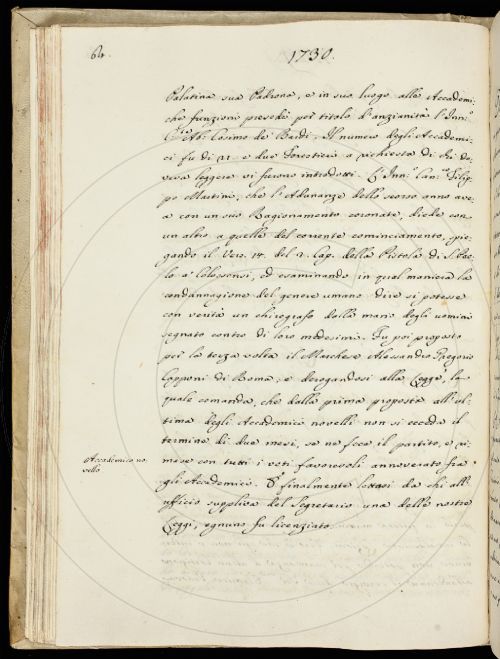 64.
1730.
Palatina sua Padrona, e in suo luogo alle Accademi:
che funzioni presedè per titolo d'anzianità l'Inn.º
Ab: Cosimo de' Bardi. Il numero degli Accademi:
ci fu di 21. e due Forestieri a richiesta di chi do:
veva leggere vi furono introdotti. L'Inn.º Can.co Filip:
po Martini, che l'Adunanze dello scorso anno ave:
a con un suo Ragionamento coronate, diede con
un altro a quelle del corrente cominciamento, spie:
gando il Vers. 14. del 2. Cap. della Pistola di S. Pao:
lo a' Colossensi, ed esaminando in qual maniera la
condannagione del genere umano dire si potesse
con verità un chirografo dalla mano degli uomini
segnato contro di loro medesimi. Fu poi proposto
per la terza volta il Marchese Alessandro Gregorio
Capponi di Roma, e derogandosi alla Legge, la
quale comanda, che dalla prima proposta all'ul:
tima degli Accademici novelli non si ecceda il
termine di due mesi, se ne fece il partito, e ri:
mase con tutti i voti favorevoli annoverato fra
gli Accademici. E finalmente lettasi da chi all'
ufficio suppliva del Segretario una delle nostre
Leggi, ognuno fu licenziato.
Accademico no:
vello